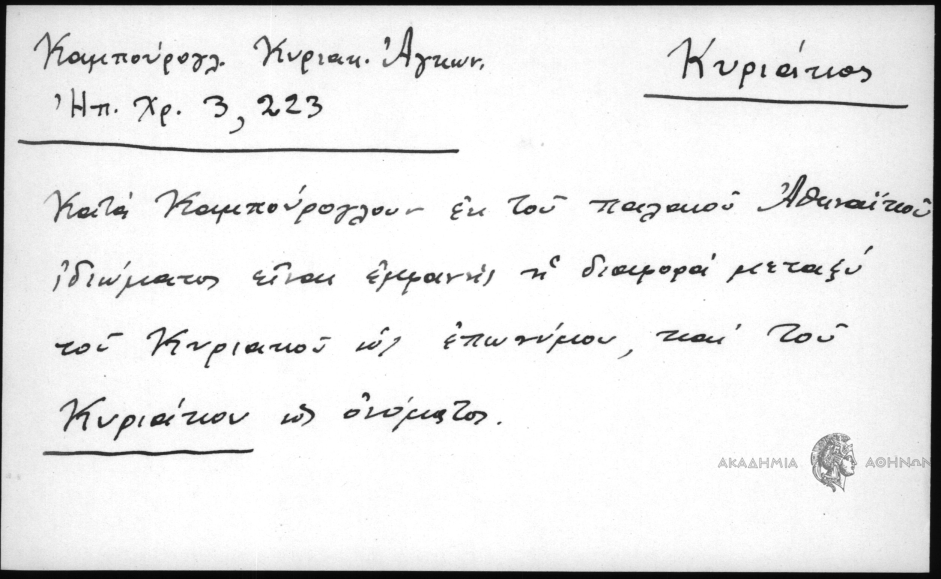 Καμπούρογλ. Κυριακ. Ἀγκων.
Ἠπ. Χρ. 3, 223
Κυριάκος
Κατὰ Καμπούρογλουν ἐκ τοῦ παλαιοῦ Ἀθηναϊκοῦ
ἰδιώματος εἶναι ἐμφανὴς ἡ διαφορά μεταξύ
τοῦ Κυριακοῦ ὡς ἐπωνύμου, καί τοῦ
Κυριάκου ὡς ὀνόματος.
ΑΚΑΔΗΜΙΑ ΑΘΗΝΩΝ